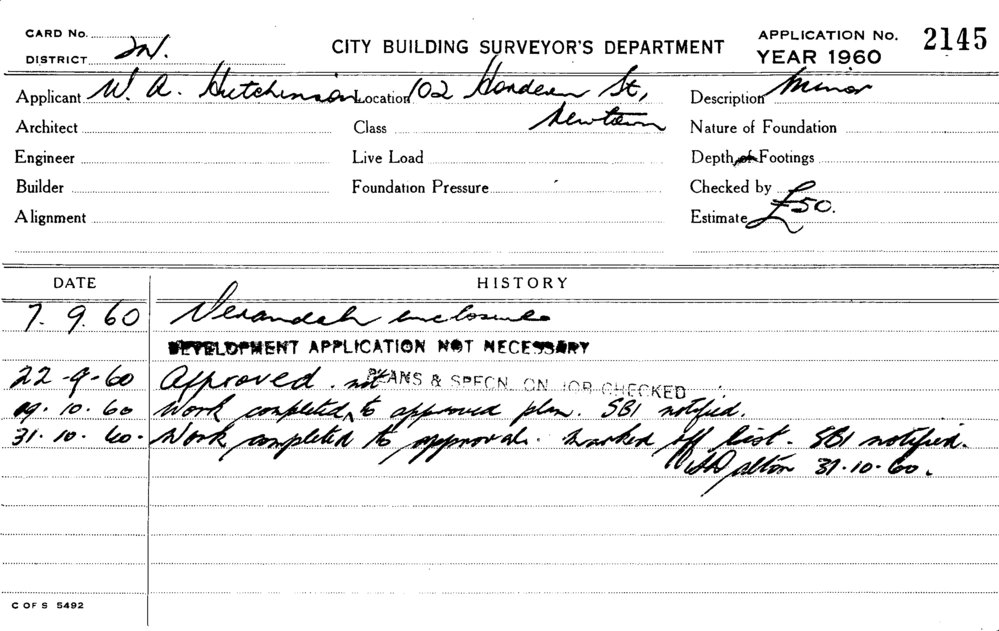 CARD No.
CITY BUILDING SURVEYOR'S DEPARTMENT
APPLICATION No. 2145
DISTRICT
YEAR 1960
Applicant W. A. Hutchinson Location 102 Hordern St, Newtown Description Minor
Architect Class Nature of Foundation
Engineer Live Load Depth of Footings
Builder Foundation Pressure Checked by
Alignment Estimate £50.
DATE HISTORY
7. 9. 60 Verandah enclosure
DEVELOPMENT APPLICATION NOT NECESSARY
22-9-60 Approved. PLANS & SPECN. ON JOB CHECKED
19.10.60 Work completed ^ not to approved plan. SBI notified.
31.10.60. Work completed to approval. Marked off list. SBI notified.
Dalton 31.10.60.
C OF S 5492